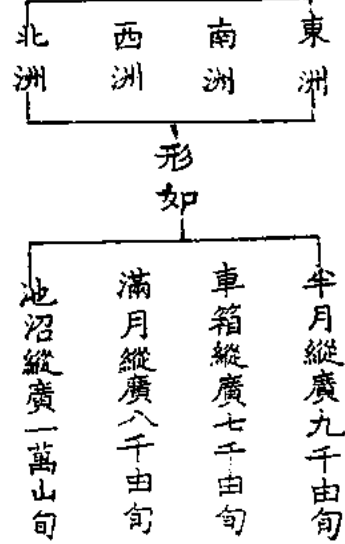 東洲
南洲
西洲
北洲
形如
半月縱廣九千由旬
車箱縱廣七千由旬
滿月縱廣八千由旬
池沼縱廣一萬山旬